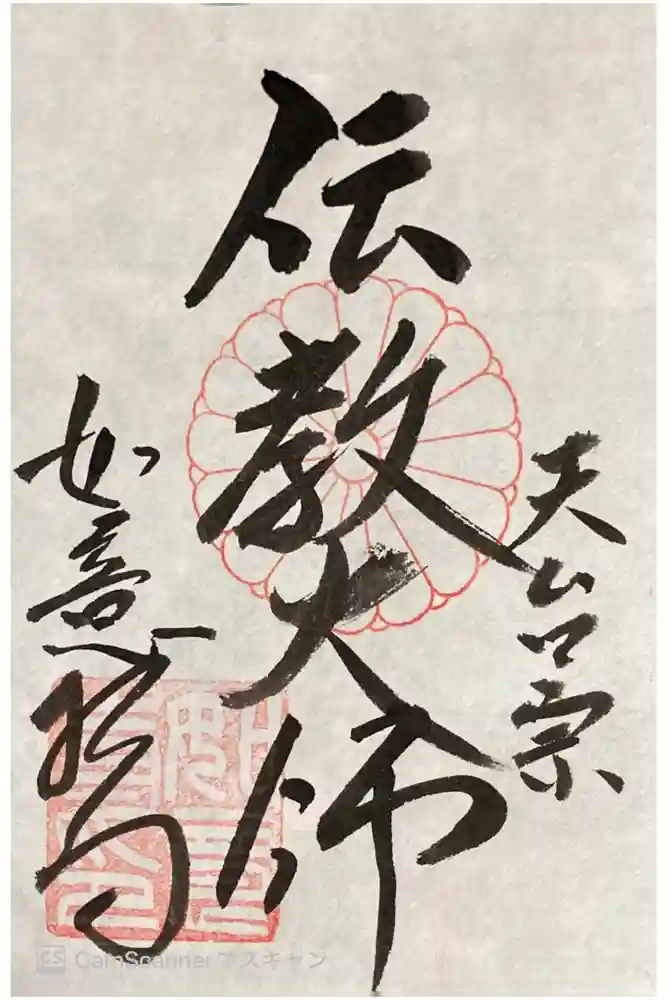 天台宗
伝教大師
如意
CS CamScanner でスキャン